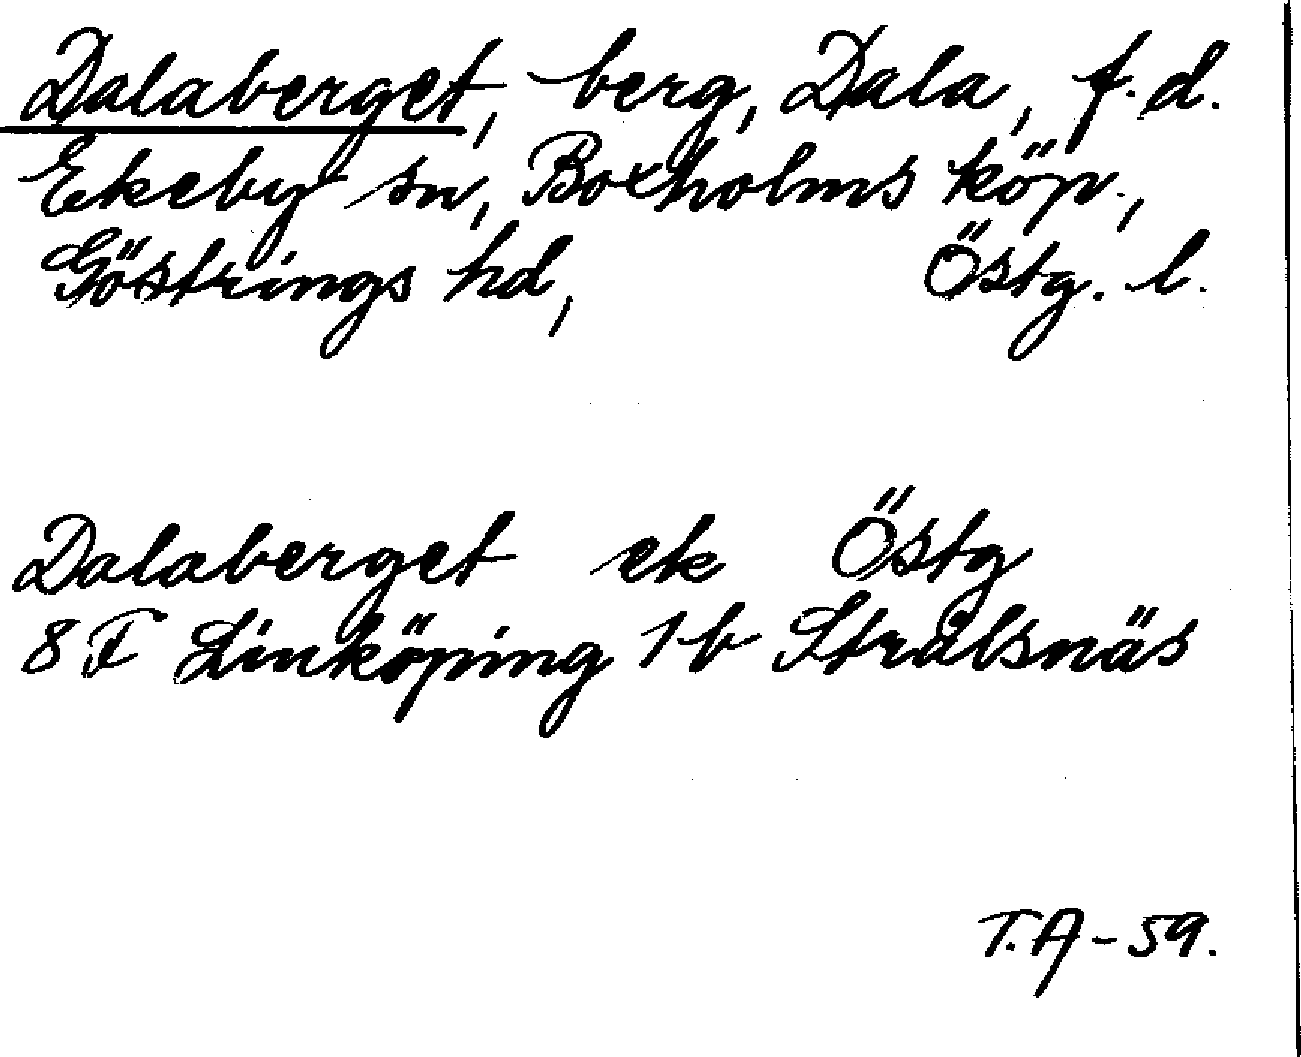 Dalaberget, berg, Dala, f.d.
Ekeby sn, Boxholms köp.,
Göstrings hd, Östg. l.
Dalaberget ek Östg
8 F Linköping 1 b Strålsnäs
T.A-59.